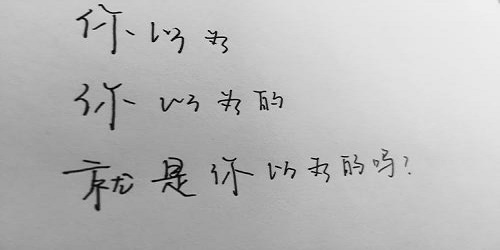 你以为
你以为的
就是你以为的吗？